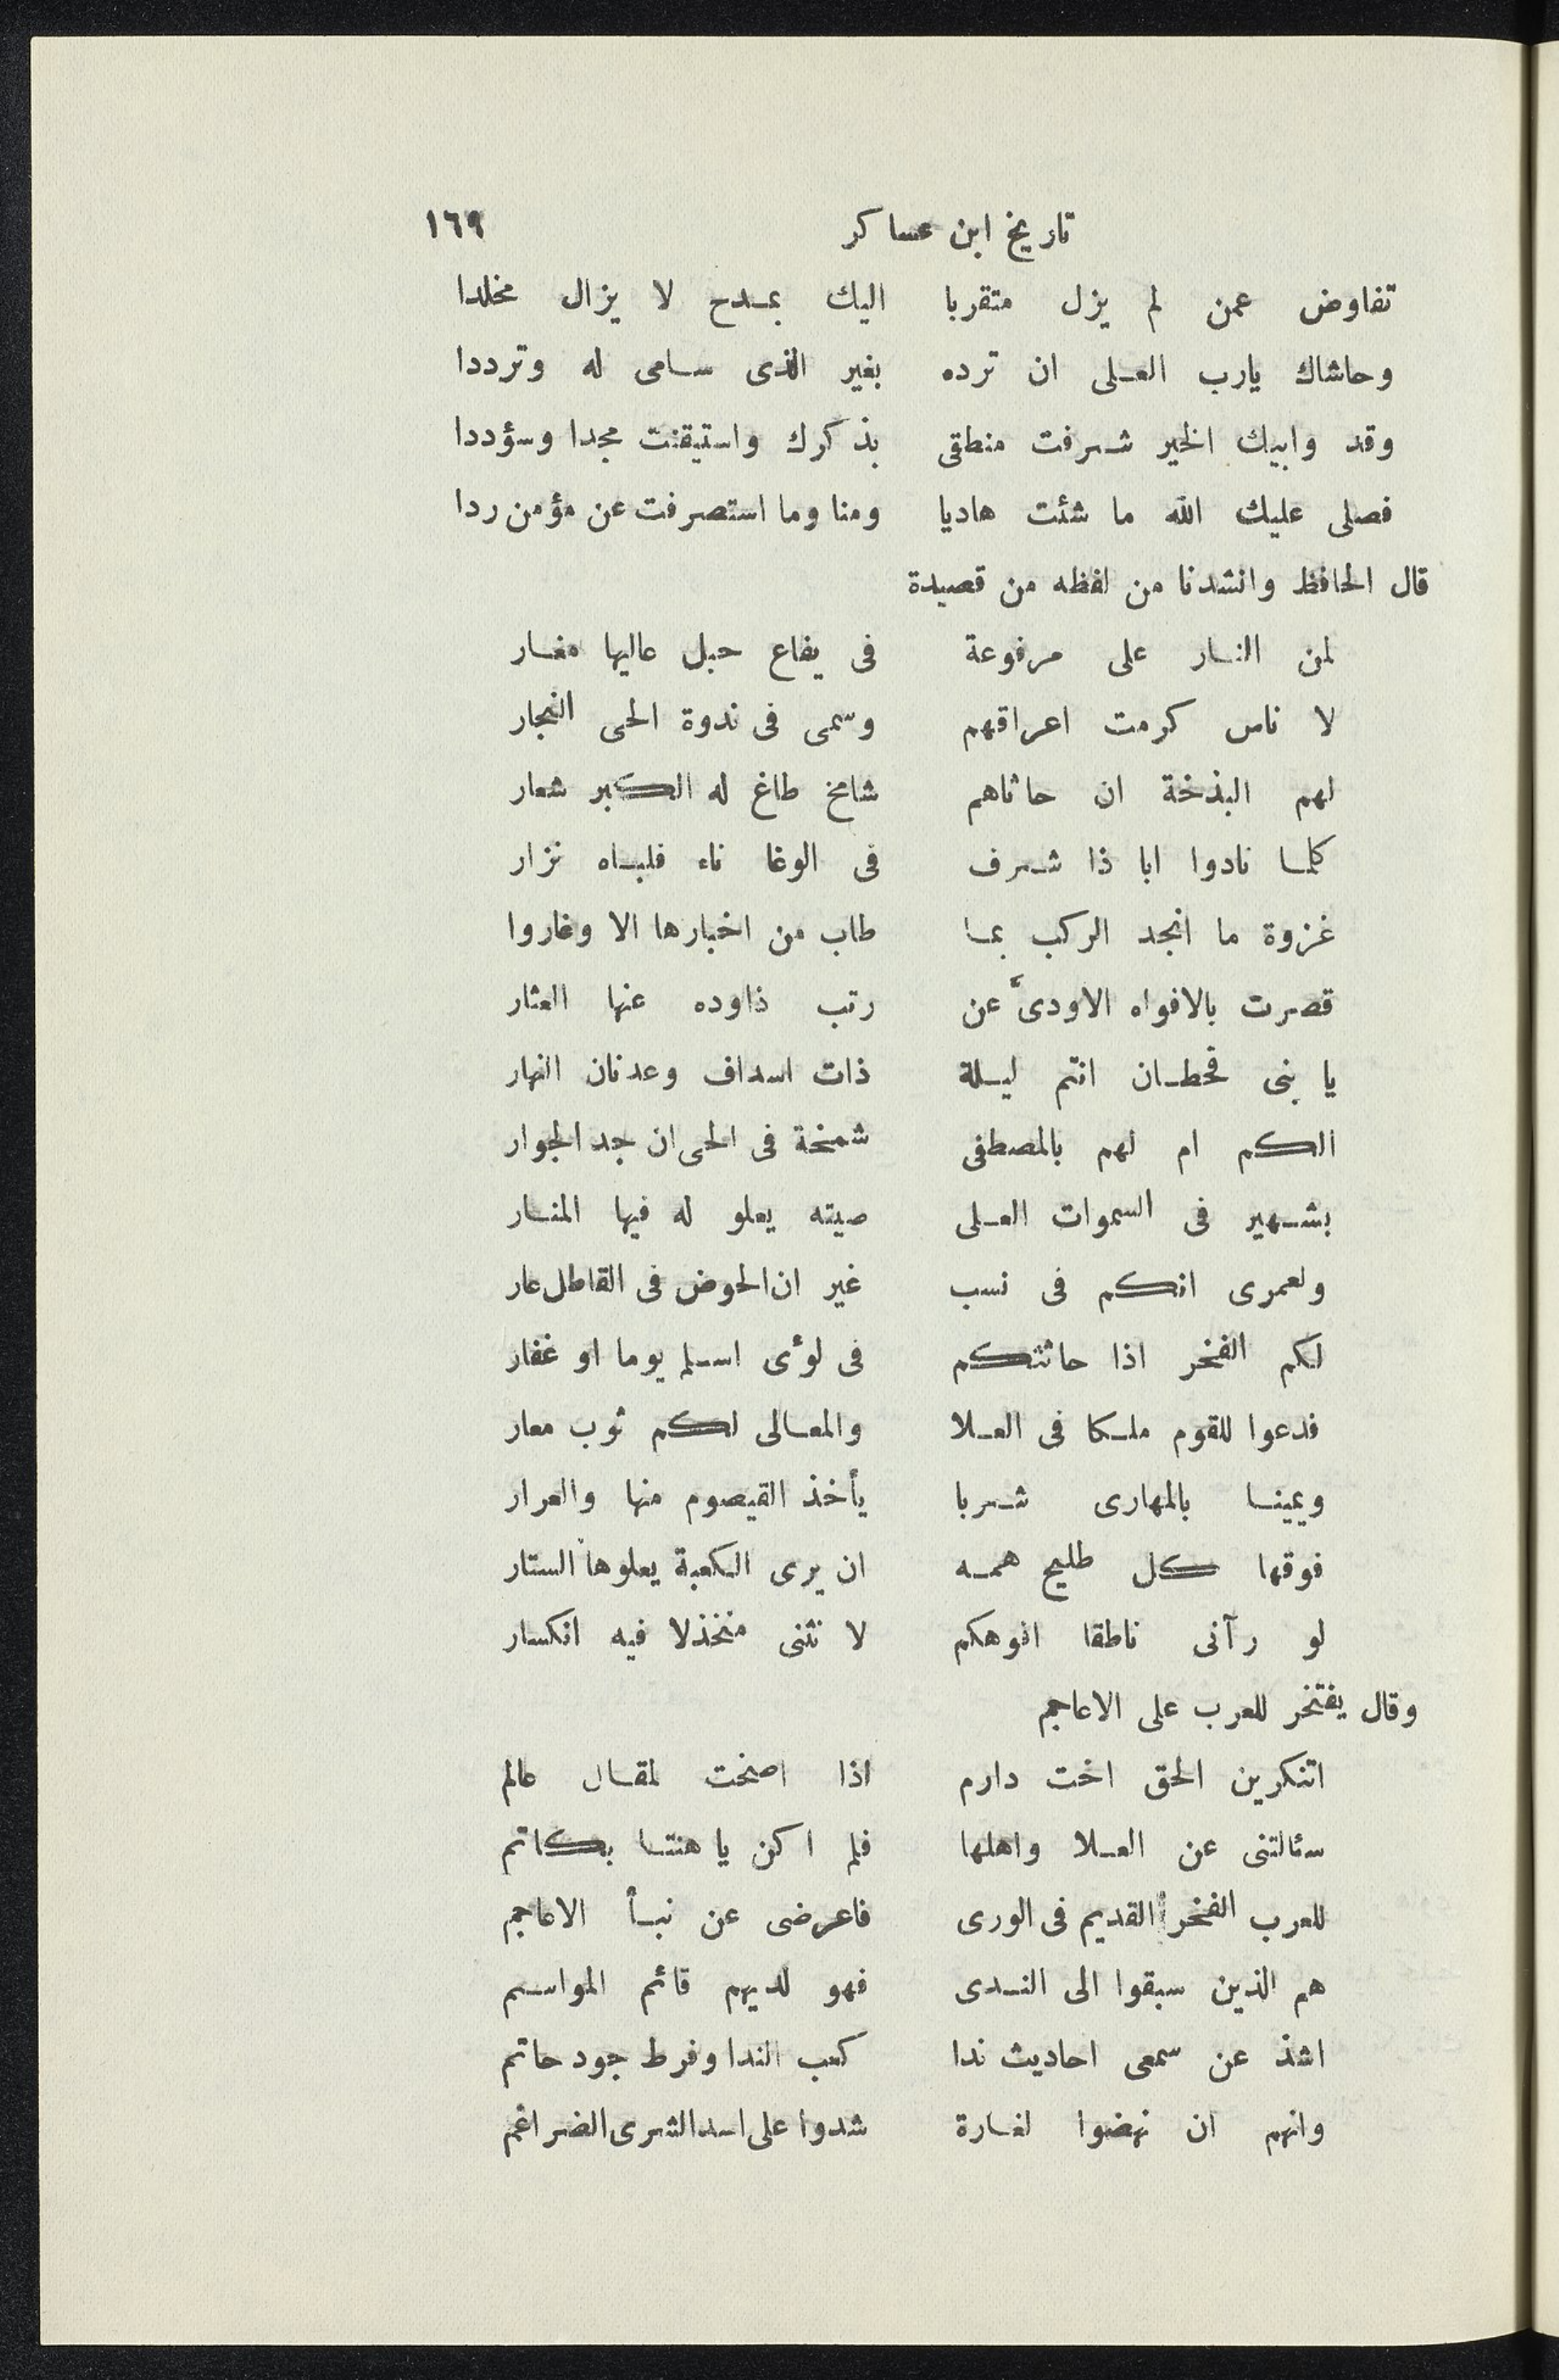 تاريخ ابن عساكر ١٦٩
تفاوض عمن لم يزل متقربا اليك بمدح لا يزال مخلدا
وحاشاك يارب العلى ان ترده بغير الذى سامى له وترددا
وقد وابيك الخير شرفت منطقى بذكرك واستيقنت مجدا وسؤددا
فصلى عليك الله ما شئت هاديا ومنا وما استصرفت عن مؤمن ردا
قال الحافظ وانشدنا من لفظه من قصيدة
لمن النار على مرفوعة فى يفاع حبل عاليها مغار
لا ناس كرمت اعراقهم وسمى فى ندوة الحى النجار
لهم البذخة ان حاثاهم شامخ طاغ له الكبر شعار
كلما نادوا ابا ذا شرف فى الوغا ناء فلباه نزار
غزوة ما انجد الركب بما طاب من اخبارها الا وغاروا
قصرت بالافواه الاودىّ عن رتب ذاوده عنها العثار
يا بنى قحطان انتم ليلة ذات اسداف وعدنان النهار
الكم ام لهم بالمصطفى شمخة فى الحى ان جد الجوار
بشهير فى السموات العلى صيته يعلو له فيها المنار
ولعمرى انكم فى نسب غير ان الحوض فى القاطل عار
لكم الفخر اذا حاثتكم فى لوءى اسلم يوما او غفار
فدعوا للقوم ملكا فى العلا والمعالى لكم ثوب معار
ويمينا بالمهارى شربا يأخذ القيصوم منها والعرار
فوقها كل طليح همه ان يرى الكعبة يعلوها الستار
لو رآنى ناطقا افوهكم لا نثنى منخذلا فيه انكسار
وقال يفتخر للعرب على الاعاجم
اتنكرين الحق اخت دارم اذا اصخت لمقال عالم
سئالتنى عن العلا واهلها فلم اكن يا هنتا بكاتم
للعرب الفخر القديم فى الورى فاعرضى عن نبأ الاعاجم
هم الذين سبقوا الى الندى فهو لديهم قائم المواسم
اشذ عن سمعى احاديث ندا كعب الندا وفرط جود حاتم
وانهم ان نهضوا لغارة شدوا على اسد الشرى الضراغم